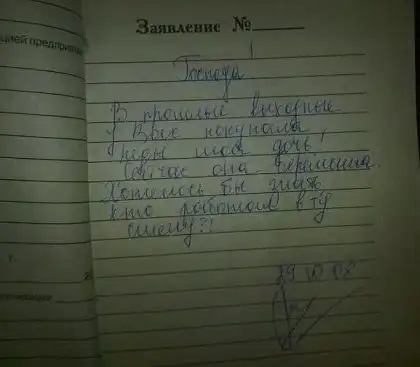 Заявление №
Господа
В прошлые выходные
у Вас покупала
кеды моя дочь,
Сейчас она беременна.
Хотелось бы знать
кто работал в ту
смену?!
29 10 08